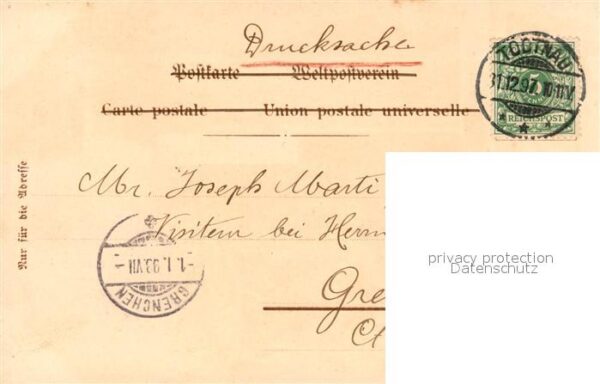 Drucksache
Postkarte Weltpostverein
Carte postale Union postale universelle
TODTNAU
31.12.97. 10-11V.
5
REICHSPOST
Nur für die Adresse
Mr. Joseph Marti
bei Herm
Gre
privacy protection
Datenschutz
-1.I.98.VII-
GRENCHEN